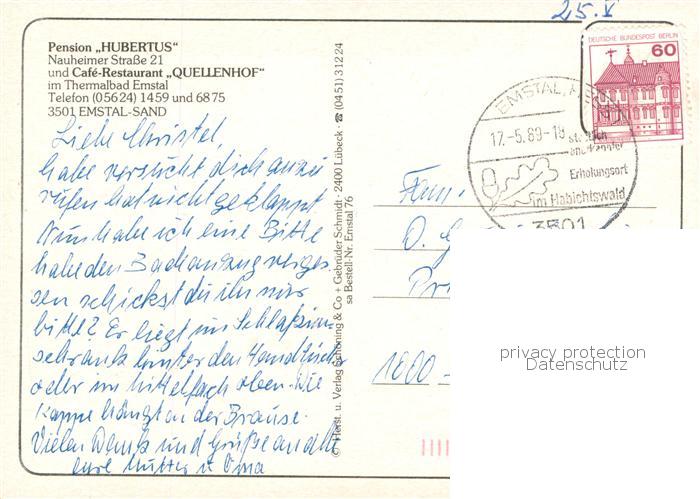 25. V
Pension „HUBERTUS"
Nauheimer Straße 21
und Café-Restaurant „QUELLENHOF"
im Thermalbad Emstal
Telefon (05624) 1459 und 6875
3501 EMSTAL-SAND
Liebe Christel,
habe versucht dich anzu
rufen hat nicht geklappt
Nun habe ich eine Bitte
habe den Badeanzug verges-
sen schickst du ihn mir
bitte? Er liegt im Schlafzim-
schrank hinter den Handtücher
oder im Mittelfach oben. Die
Kappe hängt an der Brause.
Vielen Dank und Grüße an alle
eure Mutter u. Oma
© Horst. u. Verlag Schöning & Co + Gebrüder Schmidt · 2400 Lübeck · ☎ (0451) 31224
sa Bestell-Nr. Emstal 76
DEUTSCHE BUNDESPOST BERLIN
60
EMSTAL,
17.-5.89-18
Erholungsort
im Habichtswald
3501
Fam.
O. G
1000 -
privacy protection
Datenschutz